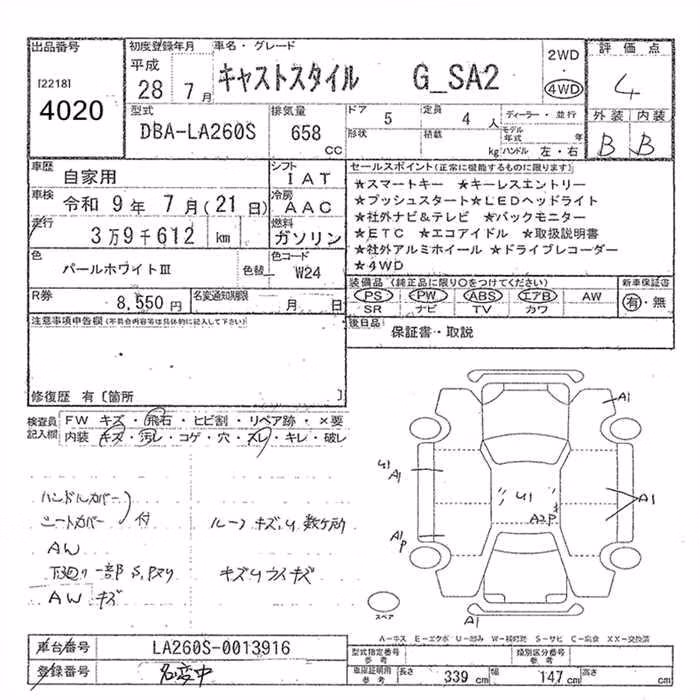 出品番号
[2218]
4020
初度登録年月
平成
28 7月
車名・グレード
キャストスタイル G_SA2
2WD
・
4WD
評価点
4
外装 内装
B B
型式
DBA-LA260S
排気量
658
cc
ドア 5
定員 4 人
形状
積載 kg
ディーラー・並行
モデル年式 年
ハンドル 左・右
車歴
自家用
シフト
IAT
車検 令和 9年 7月(21日)
冷房
AAC
走行
3万9千612 km
燃料
ガソリン
色
パールホワイトⅢ
色替
色コード
W24
R券
8,550円
名変通知期限
月 日
セールスポイント(正常に機能するものに限ります)
★スマートキー ★キーレスエントリー
★プッシュスタート★LEDヘッドライト
★社外ナビ&テレビ ★バックモニター
★ETC ★エコアイドル ★取扱説明書
★社外アルミホイール ★ドライブレコーダー
★4WD
装備品(純正品に限り○をつけてください)
PS PW ABS エアB AW
SR ナビ TV カワ
新車保証書
有・無
後日品
保証書・取説
注意事項申告欄(不具合内容等は具体的に記入して下さい)
修復歴 有〔箇所 〕
検査員記入欄
FW キズ・飛石・ヒビ割・リペア跡・×要
内装・キズ・汚レ・コゲ・穴・スレ・キレ・破レ
ハンドルカバー
シートカバー 付
AW
下廻り一部S,Pヌリ
AW キズ
ルーフ キズ,U 数ヶ所
キズUウスキズ
A1
U1
A1
U1
A2P
A1
A1P
A1
スペア
A-キズ E-エクボ U-凹み W-補修跡 S-サビ C-腐食 XX-交換済
車台番号
LA260S-0013916
登録番号
名変中
型式指定番号
参考
類別区分番号
参考
車庫証明用
参考
長さ 339 cm
幅 147 cm
高さ cm